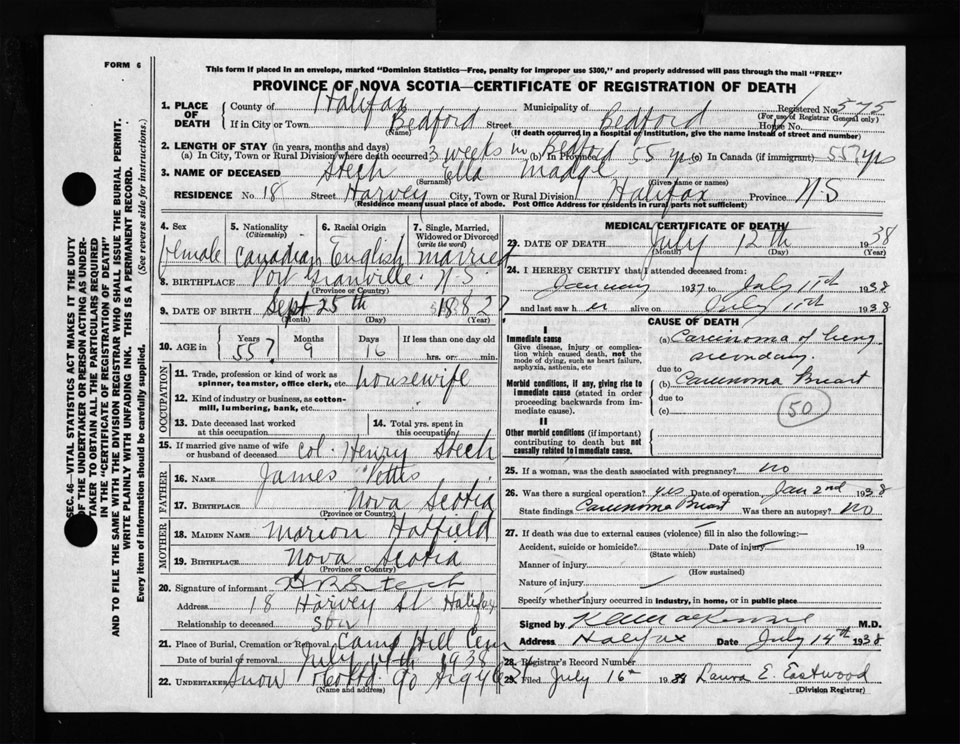 FORM 6
This form if placed in an envelope, marked "Dominion Statistics—Free, penalty for improper use $300," and properly addressed will pass through the mail "FREE"
PROVINCE OF NOVA SCOTIA—CERTIFICATE OF REGISTRATION OF DEATH
1. PLACE OF DEATH
County of Halifax Municipality of Registered No. 575
(For use of Registrar General only)
If in City or Town Bedford Street Bedford House No.
(Name) (If death occurred in a hospital or institution, give name instead of street and number)
2. LENGTH OF STAY (in years, months and days)
(a) In City, Town or Rural Division where death occurred 3 weeks in Bedford (b) In Province 55 yrs (c) In Canada (if immigrant) 55 yrs
3. NAME OF DECEASED Stech Ella Madge
(Surname) (Given name or names)
RESIDENCE No. 18 Street Harvey City, Town or Rural Division Halifax Province N-S
(Residence means usual place of abode. Post Office Address for residents in rural parts not sufficient)
4. Sex 5. Nationality (Citizenship) 6. Racial Origin 7. Single, Married, Widowed or Divorced (write the word)
Female Canadian English married
8. BIRTHPLACE Port Granville N.S.
(Province or Country)
9. DATE OF BIRTH Sept 25th 1882?
(Month) (Day) (Year)
10. AGE in Years Months Days If less than one day old
55? 9 16 hrs. or min.
OCCUPATION
11. Trade, profession or kind of work as spinner, teamster, office clerk, etc. housewife
12. Kind of industry or business, as cotton-mill, lumbering, bank, etc.
13. Date deceased last worked at this occupation
14. Total yrs. spent in this occupation
15. If married give name of wife or husband of deceased Col. Henry Stech
FATHER
16. NAME James
17. BIRTHPLACE Nova Scotia
(Province or Country)
MOTHER
18. MAIDEN NAME Marion Hatfield
19. BIRTHPLACE Nova Scotia
(Province or Country)
20. Signature of informant Stech
Address 18 Harvey St Halifax
Relationship to deceased son
21. Place of Burial, Cremation or Removal Camp Hill Cem
Date of burial or removal July 1938
22. UNDERTAKER Snow Co Argyle
(Name and address)
MEDICAL CERTIFICATE OF DEATH
23. DATE OF DEATH July 12th 1938
(Month) (Day) (Year)
24. I HEREBY CERTIFY that I attended deceased from:
January 1937 to July 11th 1938
and last saw her alive on July 11th 1938
CAUSE OF DEATH
I
Immediate cause
Give disease, injury or complication which caused death, not the mode of dying, such as heart failure, asphyxia, asthenia, etc
(a) Carcinoma of lung
secondary.
due to
Morbid conditions, if any, giving rise to immediate cause (stated in order proceeding backwards from immediate cause).
(b) Carcinoma Breast
due to
(c)
50
II
Other morbid conditions (if important) contributing to death but not causally related to immediate cause.
25. If a woman, was the death associated with pregnancy? no
26. Was there a surgical operation? yes Date of operation Jan 2nd 1938
State findings Carcinoma Breast Was there an autopsy? No
27. If death was due to external causes (violence) fill in also the following:—
Accident, suicide or homicide? Date of injury 19
(State which)
Manner of injury
(How sustained)
Nature of injury
Specify whether injury occurred in industry, in home, or in public place
Signed by MacKenzie M.D.
Address Halifax Date July 14th 1938
28. Registrar's Record Number
29. Filed July 16th 1938 Laura E. Eastwood
(Division Registrar)
SEC. 46—VITAL STATISTICS ACT MAKES IT THE DUTY
OF THE UNDERTAKER OR PERSON ACTING AS UNDER-
TAKER TO OBTAIN ALL THE PARTICULARS REQUIRED
IN THE "CERTIFICATE OF REGISTRATION OF DEATH"
AND TO FILE THE SAME WITH THE DIVISION REGISTRAR WHO SHALL ISSUE THE BURIAL PERMIT.
WRITE PLAINLY WITH UNFADING INK. THIS IS A PERMANENT RECORD.
Every item of information should be carefully supplied. (See reverse side for instructions.)